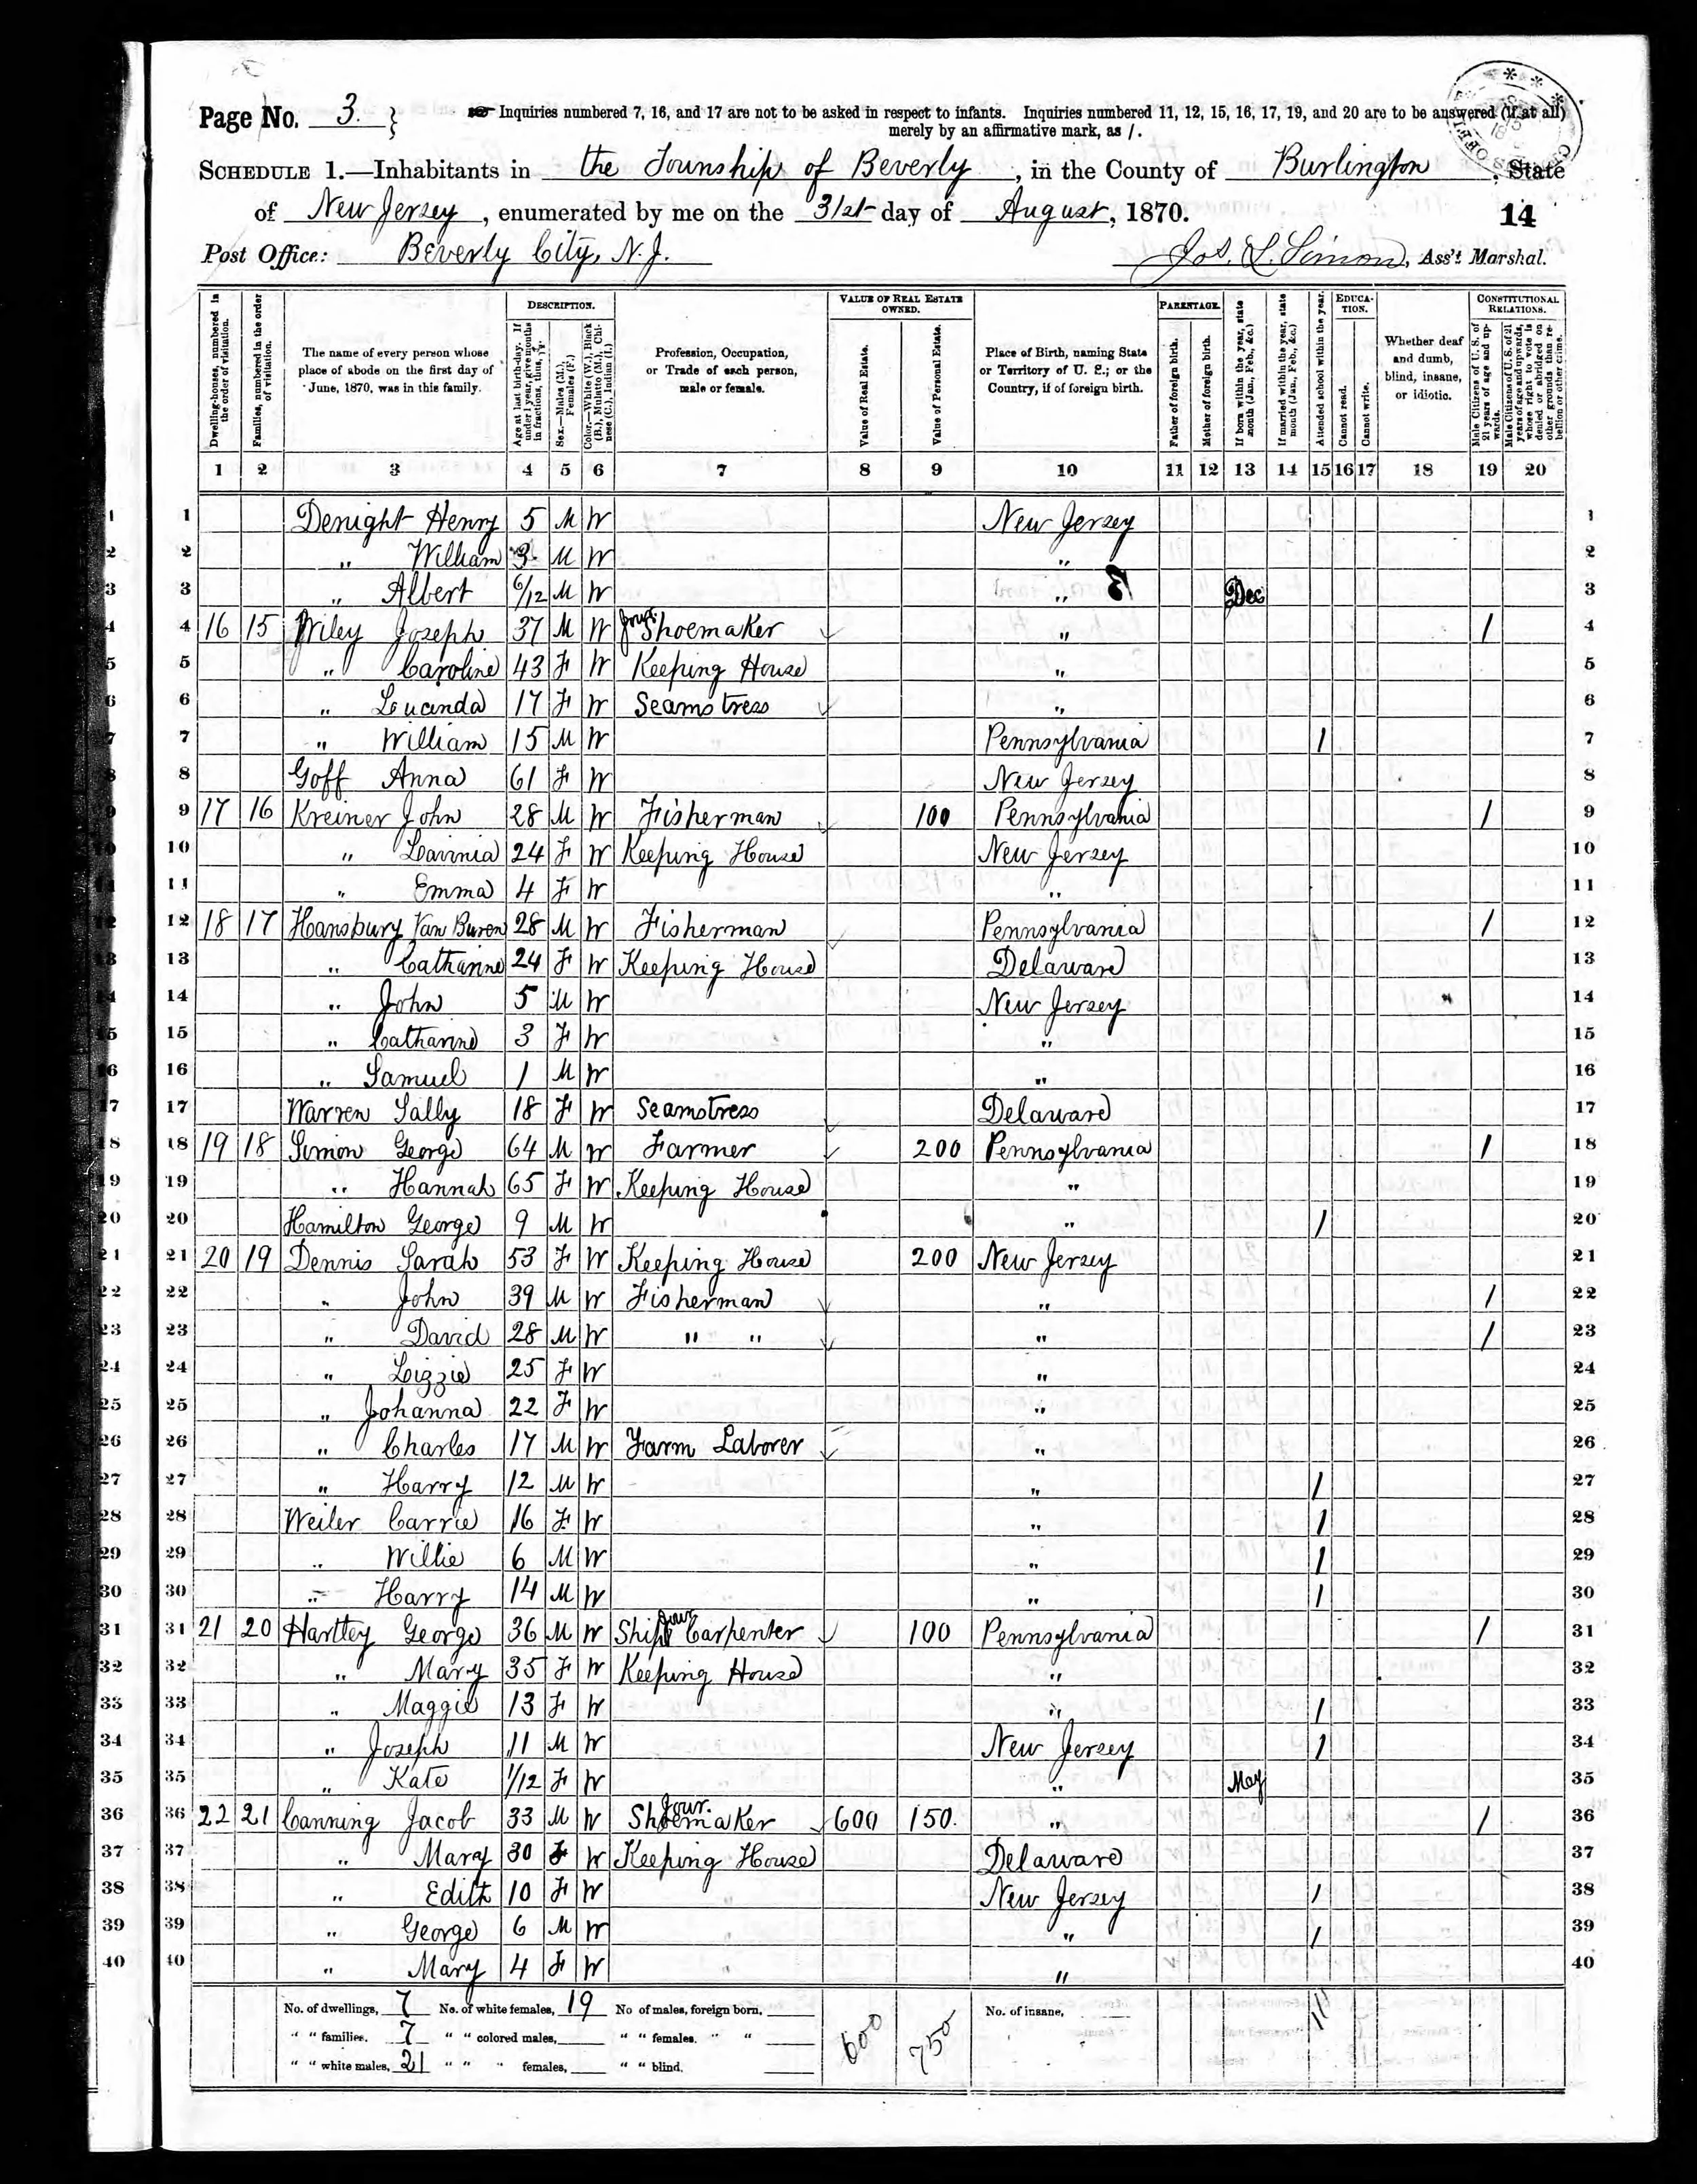 Page No. 3. } Inquiries numbered 7, 16, and 17 are not to be asked in respect to infants. Inquiries numbered 11, 12, 15, 16, 17, 19, and 20 are to be answered (if at all)
merely by an affirmative mark, as /.
SCHEDULE 1.—Inhabitants in the Township of Beverly, in the County of Burlington, State
of New Jersey, enumerated by me on the 31st day of August, 1870. 14
Post Office: Beverly City, N. J. Jos. L. Simon, Ass't Marshal.
Dwelling-houses, numbered in the order of visitation.
Families, numbered in the order of visitation.
The name of every person whose place of abode on the first day of June, 1870, was in this family.
DESCRIPTION.
Age at last birth-day. If under 1 year, give months in fractions, thus,
Sex.—Males (M.), Females (F.)
Color.—White (W.), Black (B.), Mulatto (M.), Chinese (C.), Indian (I.)
Profession, Occupation, or Trade of each person, male or female.
VALUE OF REAL ESTATE OWNED.
Value of Real Estate.
Value of Personal Estate.
Place of Birth, naming State or Territory of U. S.; or the Country, if of foreign birth.
PARENTAGE.
Father of foreign birth.
Mother of foreign birth.
If born within the year, state month (Jan., Feb., &c.)
If married within the year, state month (Jan., Feb., &c.)
Attended school within the year.
EDUCATION.
Cannot read.
Cannot write.
Whether deaf and dumb, blind, insane, or idiotic.
CONSTITUTIONAL RELATIONS.
Male Citizens of U. S. of 21 years of age and upwards.
Male Citizens of U. S. of 21 years of age and upwards, whose right to vote is denied or abridged on other grounds than rebellion or other crime.
1 2 3 4 5 6 7 8 9 10 11 12 13 14 15 16 17 18 19 20
1 1 Denight Henry 5 M W New Jersey 1
2 2 " William 3 M W " 2
3 3 " Albert 6/12 M W " Dec 3
4 4 16 15 Wiley Joseph 37 M W Jour. Shoemaker " / 4
5 5 " Caroline 43 F W Keeping House " 5
6 6 " Lucinda 17 F W Seamstress " 6
7 7 " William 15 M W Pennsylvania / 7
8 8 Goff Anna 61 F W New Jersey 8
9 9 17 16 Kreiner John 28 M W Fisherman 100 Pennsylvania / 9
10 10 " Lavinia 24 F W Keeping House New Jersey 10
11 11 " Emma 4 F W " 11
12 12 18 17 Hansbury Van Buren 28 M W Fisherman Pennsylvania / 12
13 13 " Catharine 24 F W Keeping House Delaware 13
14 14 " John 5 M W New Jersey 14
15 15 " Catharine 3 F W " 15
16 16 " Samuel 1 M W " 16
17 17 Warren Sally 18 F W Seamstress Delaware 17
18 18 19 18 Simon George 64 M W Farmer 200 Pennsylvania / 18
19 19 " Hannah 65 F W Keeping House " 19
20 20 Hamilton George 9 M W " / 20
21 21 20 19 Dennis Sarah 53 F W Keeping House 200 New Jersey 21
22 22 " John 39 M W Fisherman " / 22
23 23 " David 28 M W " " " / 23
24 24 " Lizzie 25 F W " 24
25 25 " Johanna 22 F W " 25
26 26 " Charles 17 M W Farm Laborer " 26
27 27 " Harry 12 M W " / 27
28 28 Weiler Carrie 16 F W " / 28
29 29 " Willie 6 M W " / 29
30 30 " Harry 14 M W " / 30
31 31 21 20 Hartley George 36 M W Ship Jour Carpenter 100 Pennsylvania / 31
32 32 " Mary 35 F W Keeping House " 32
33 33 " Maggie 13 F W " / 33
34 34 " Joseph 11 M W New Jersey / 34
35 35 " Kate 1/12 F W " May 35
36 36 22 21 Canning Jacob 33 M W Jour. Shoemaker 600 150. " / 36
37 37 " Mary 30 F W Keeping House Delaware 37
38 38 " Edith 10 F W New Jersey / 38
39 39 " George 6 M W " / 39
40 40 " Mary 4 F W " 40
No. of dwellings, 7 No. of white females, 19 No of males, foreign born, 600 750 No. of insane, 11
" " families. 7 " " colored males, " " females. " "
" " white males, 21 " " " females, " " blind.